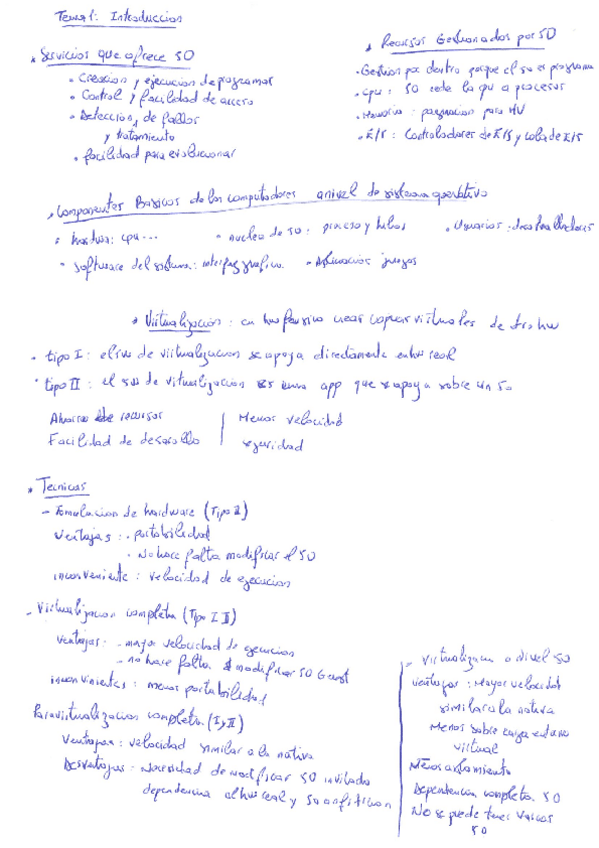 Tema 1: Introduccion
Servicios que ofrece SO
Creacion y ejecucion de programas
Control y facilidad de acceso
Deteccion de fallos
y tratamiento
facilidad para evolucionar
Recursos Gestionados por SO
Gestion por dentro porque el so es programa
CPU: SO cede la cpu a procesos
Memoria: paginacion para MV
E/S: Controladores de E/S y cola de E/S
Componentes Basicos de los computadores a nivel de sistema operativo
hardware: cpu ...
nucleo de SO: proceso y hilos
Usuarios: desarrolladores
Software del sistema: interfaz grafica.
Aplicacion juegos
Virtualizacion: en hw fisico crear copias virtuales de otro hw
tipo I: el sw de virtualizacion se apoya directamente en hw real
tipo II: el sw de virtualizacion es una app que se apoya sobre un SO
Ahorro de recursos
Facilidad de desarollo
Menor velocidad
seguridad
Tecnicas
- Emulacion de hardware (Tipo 2)
Ventajas: . portabilidad
. No hace falta modificar el SO
inconveniente: velocidad de ejecucion
- Virtualizacion completa (Tipo I II)
ventajas: - mayor velocidad de ejecucion
- no hace falta modificar SO Guest
inconvinientes: menos portabilidad
Paravirtualizacion completa (I y II)
Ventajas: velocidad similar a la nativa
Desventajas: Necesidad de modificar SO invitado
dependencia al hw real y SO anfitrion
- Virtualizacion a nivel SO
Ventajas: Mayor velocidad
similar a la nativa
Menos sobre carga entorno
virtual
Menos aislamiento
Dependencia completa SO
No se puede tener varios
SO